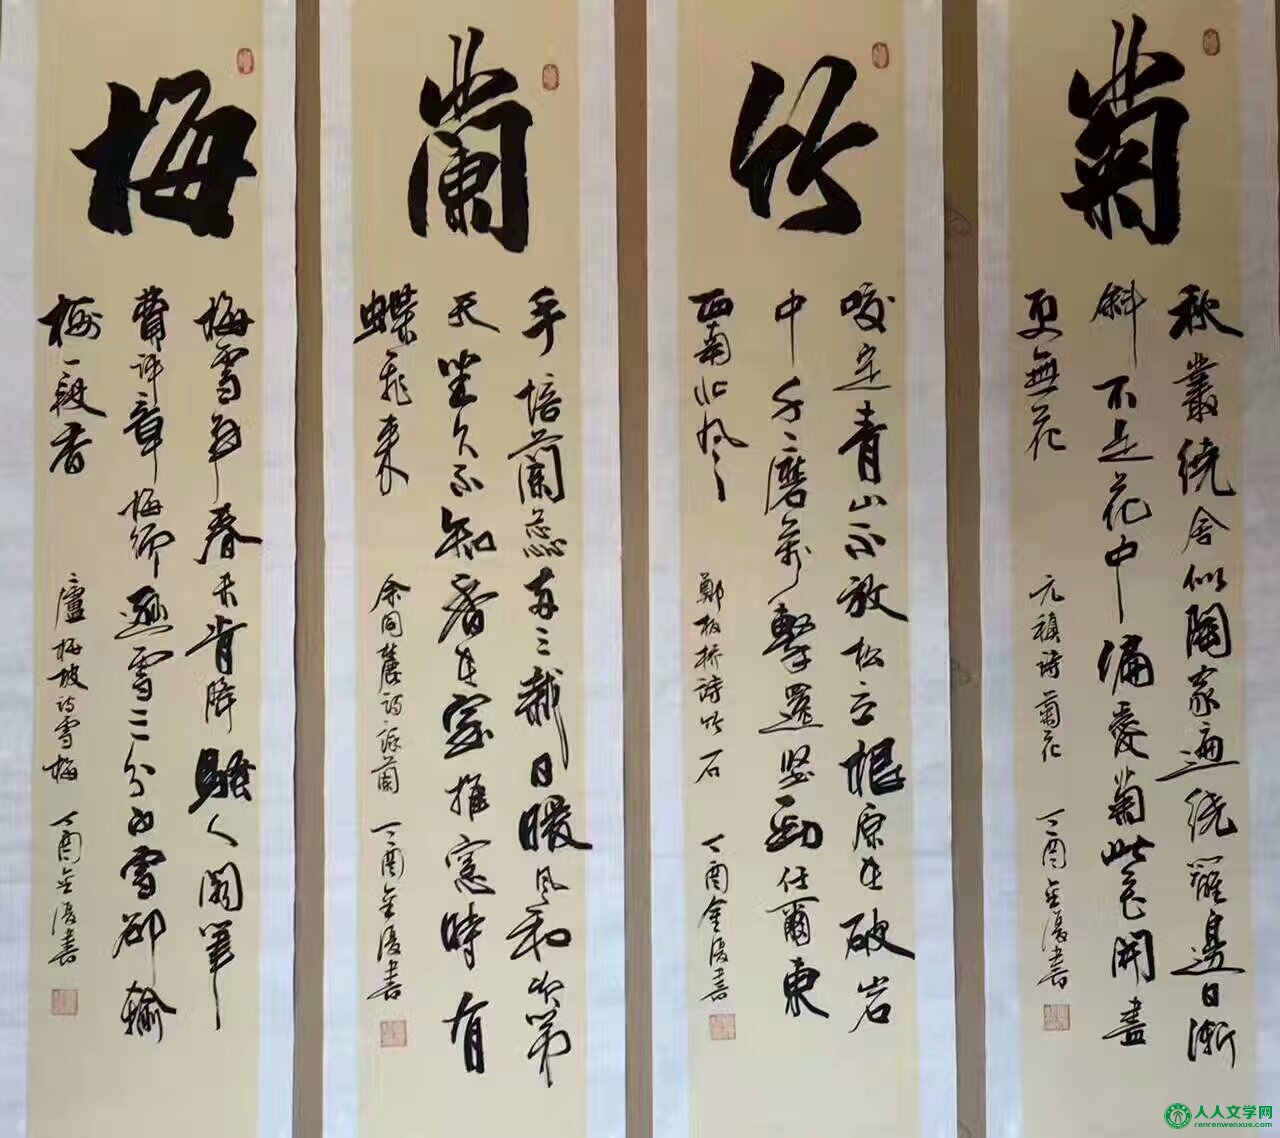 梅
梅雪爭春未肯降騷人閣筆
費評章梅須遜雪三分白雪卻輸
梅一段香
盧梅坡詩雪梅 丁酉金書
蘭
手培蘭蕊兩三栽日暖風和次第
天坐久不知香在室推窓時有
蝶飛來
余同麓詩詠蘭 丁酉金書
竹
咬定青山不放松立根原在破岩
中千々磨萬擊還堅勁任爾東
西南北風
鄭板桥詩竹石 丁酉金書
菊
秋叢繞舍似陶家遍繞籬邊日漸
斜不是花中偏愛菊此花開盡
更無花
元稹詩菊花 丁酉金書
人人文学网
renrenwenxue.com